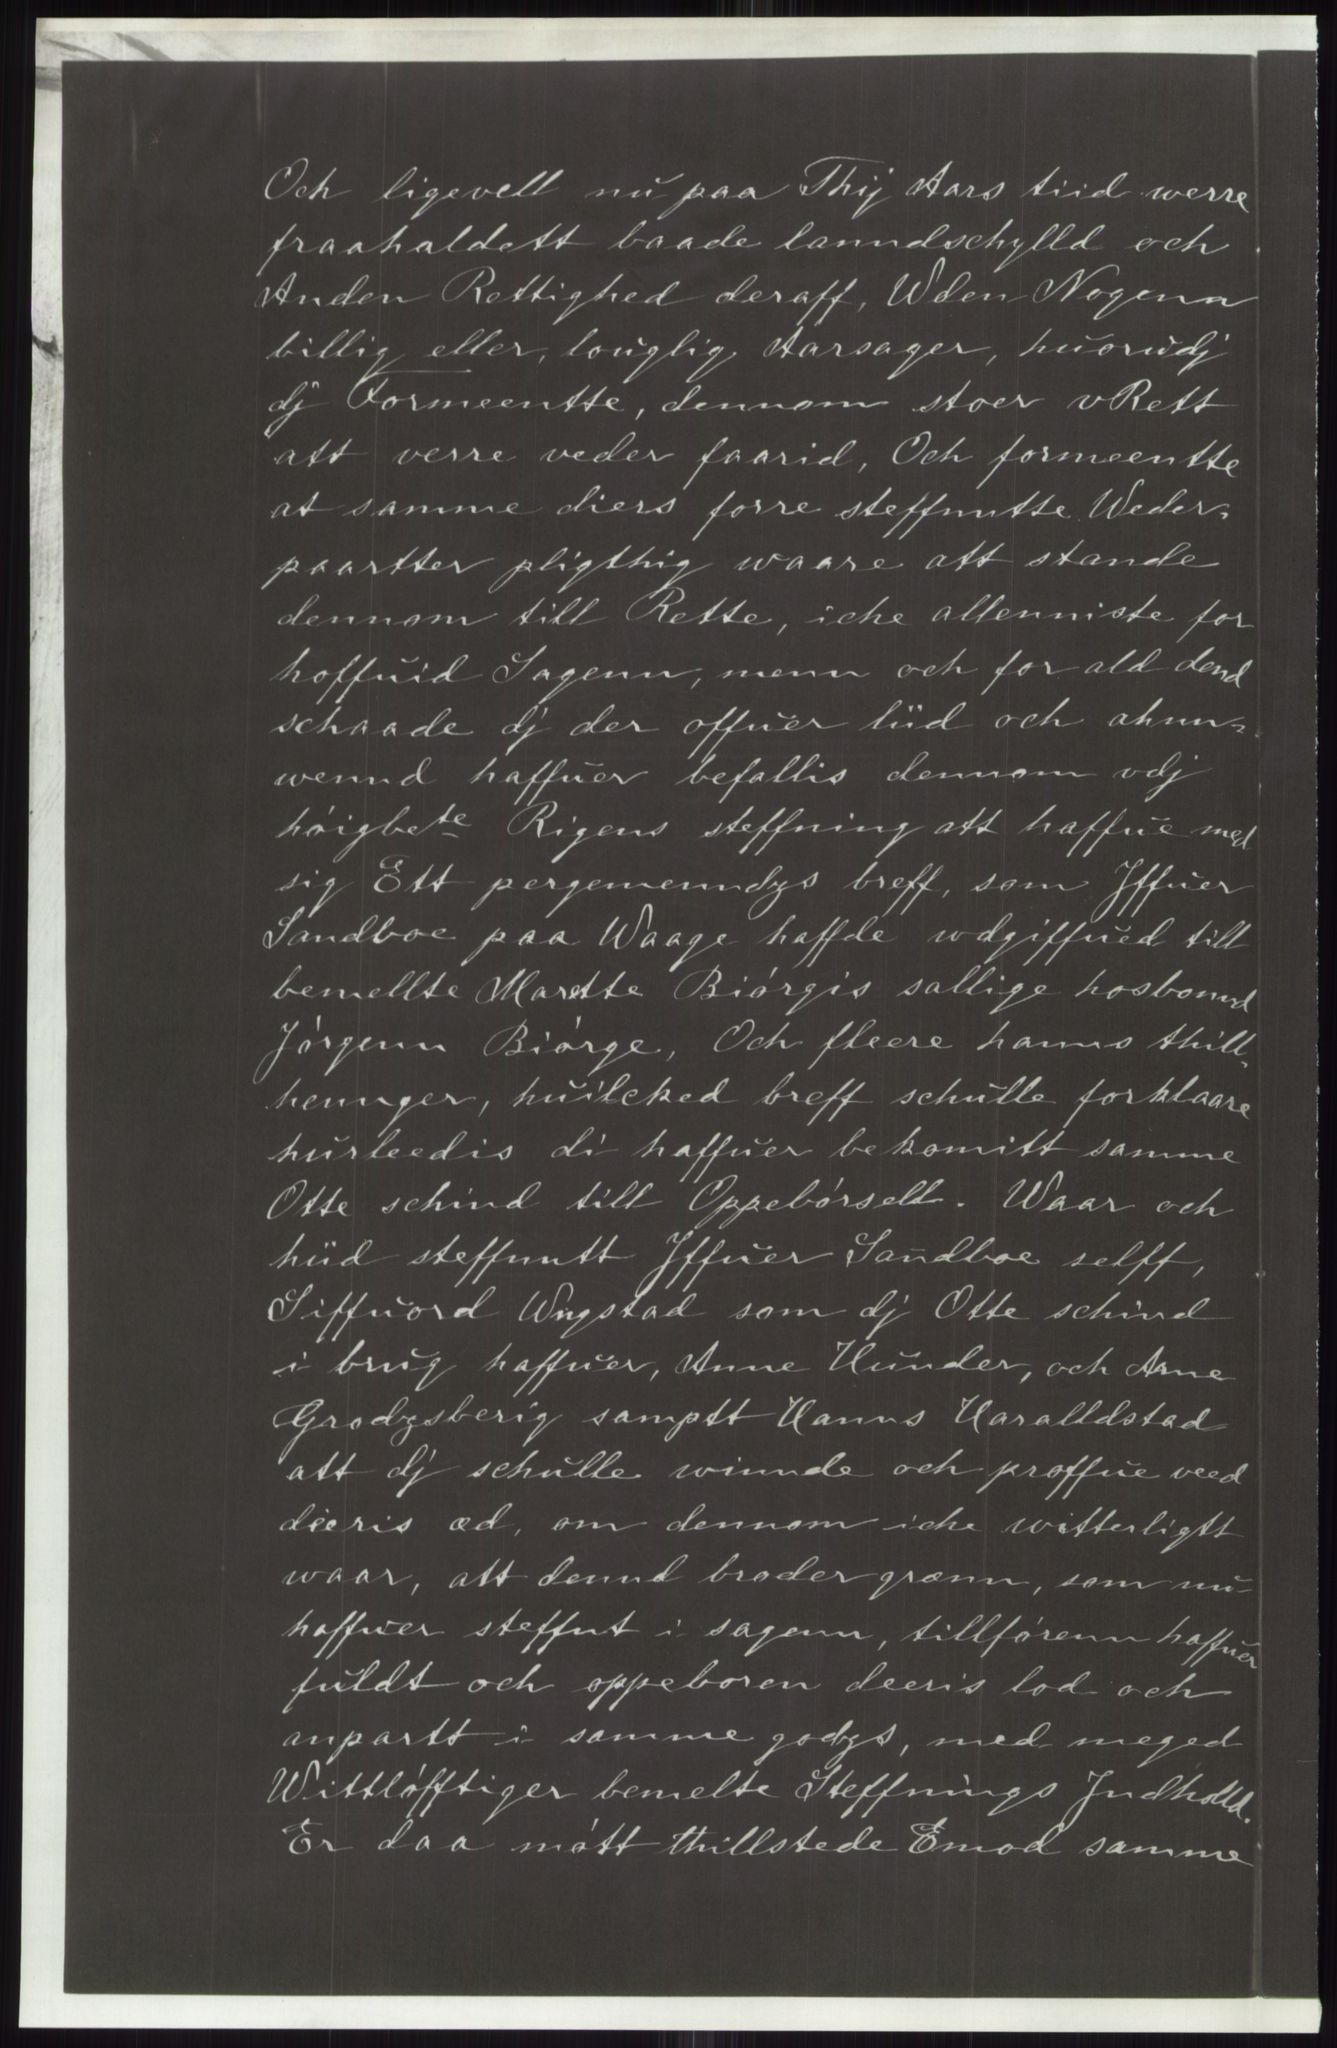 Och ligevell nu paa Thij Aars tiid werre
fraahaldett baade lanndschylld och
Anden Rettighed deraff, Wden Nogenn
billig eller louglig Aarsager, huorudj
dj Formeentte, dennom stoer vRett
att verre veder faarid, Och formeentte
at samme diers forre steffnntte Weder-
paartter pligthig waare att stande
dennom till Rette, iche allenniste for
hoffuid Sagenn, menn och for ald dend
schaade dj der offuer liid och ahnn-
wennd haffuer befallis dennom vdj
høigbete Rigens steffning att haffue med
sig Ett pergemenndys breff, som Jffuer
Sandboe paa Waage haffde wdgiffued till
bemellte Marette Biørgis sallige hosbonnd
Jørgenn Biørge, Och fleere hanns thill-
hennger, huilcked breff schulle forklaare
hurleedis di haffuer bekomitt samme
Otte schind till Oppebørsell. Waar och
hiid steffnntt Jffuer Sandboe selff,
Siffuord Wngstad som dj Otte schind
i brug haffuer, Anne Hunder, och Arne
Grodysberig samptt Hanns Haralldstad
att dj schulle winnde och proffue veed
dieris æd, om dennom iche witterligtt
waar, att dennd broder grænn, som nu
haffuer steffnt i sagenn, tillførenn haffuer
fuldt och oppeboren deeris lod och
anpartt i samme godys, med meged
Wittløfftiger bemelte Steffnings Jndholld.
Er daa møtt thillstede Emod samme